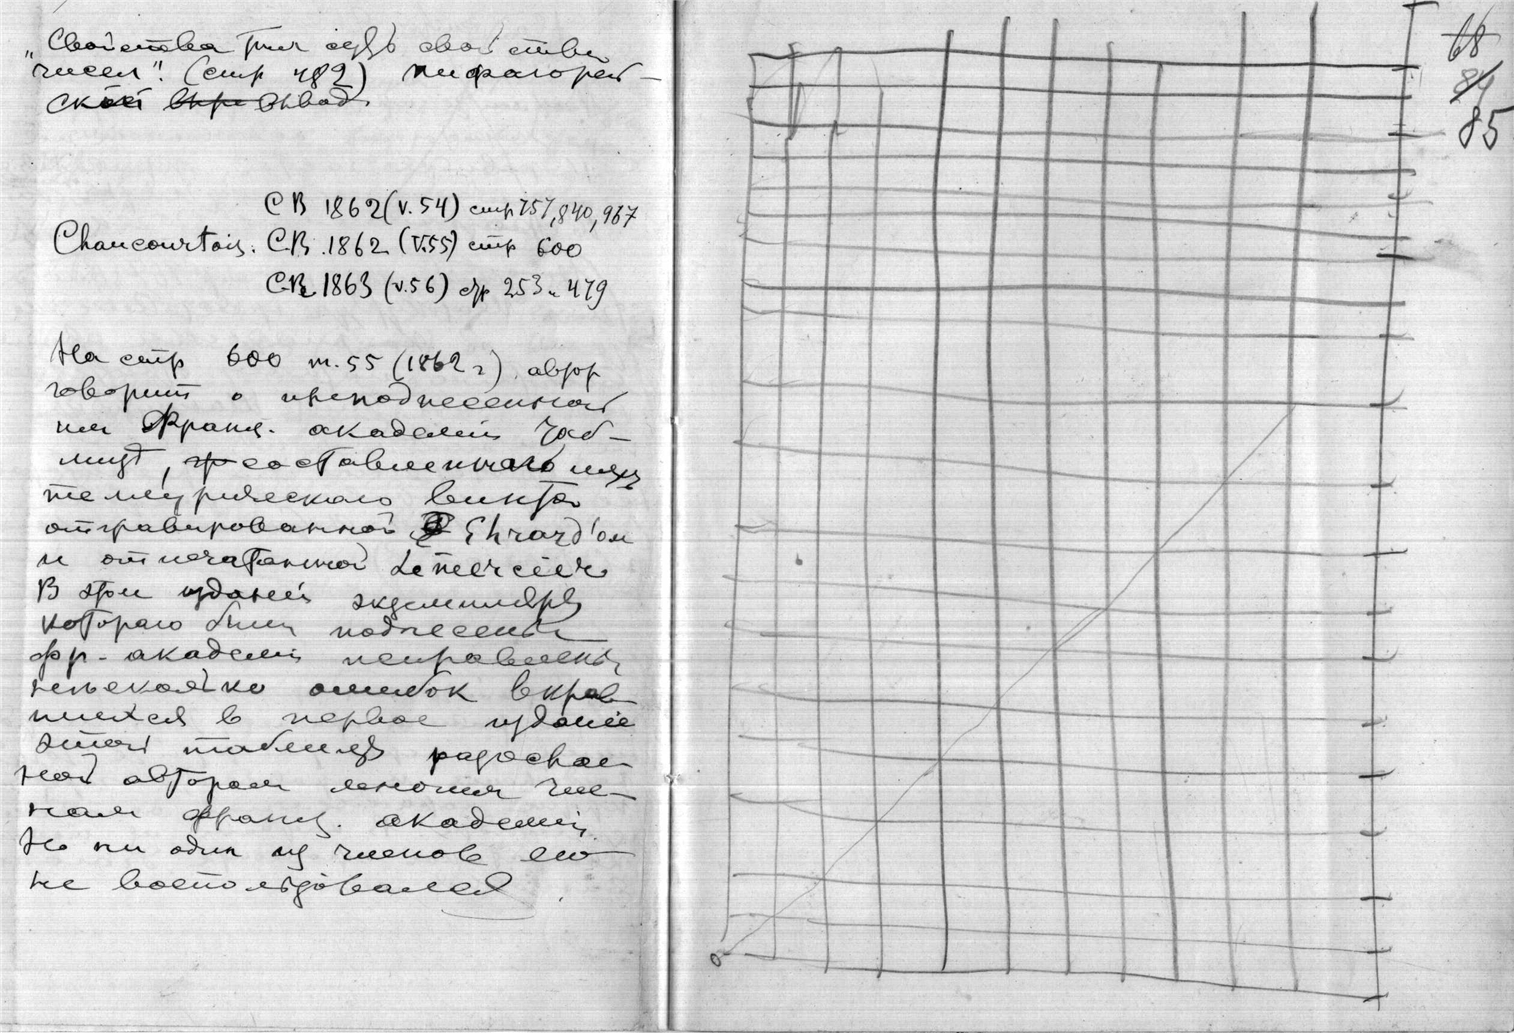 „Свойства тел суть свойства
чисел“. (стр 482) пифагорей-
ский вывод
С В 1862 (v.54) стр 757, 840, 967
Chancourtois. С.В. 1862 (V.55) стр 600
С.В. 1863 (v.56) стр 253 и 479
На стр 600 т. 55 (1862 г) автор
говорит о преподнесенной
им Франц. академіи таб-
лице, составленного им
теллурического винта
отгравированной Ehrard'ом
и отпечатанной Lemercier
В этом изданіи экземпляры
котораго были поднесены
фр. академіи исправлены
несколько ошибок вкрав-
шихся в первое изданіе
этой таблицы разослан-
ной автором многим чле-
нам франц. академіи.
Но ни один из членов ею
не воспользовался
68
84
85
0